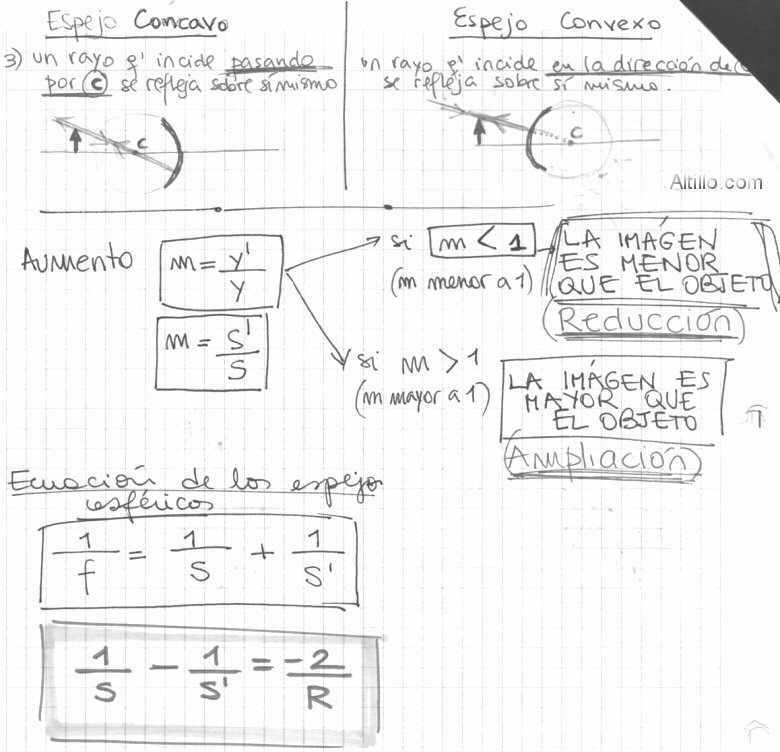 Espejo Concavo
3) un rayo q' incide pasando
por C se refleja sobre sí mismo
C
Espejo Convexo
un rayo q' incide en la dirección de
se refleja sobre sí mismo.
C
Altillo.com
Aumento
m = y'/y
m = s'/s
si m < 1
(m menor a 1)
LA IMÁGEN
ES MENOR
QUE EL OBJETO
(Reducción)
si m > 1
(m mayor a 1)
LA IMÁGEN ES
MAYOR QUE
EL OBJETO
(Ampliación)
Ecuación de los espejos
esféricos
1/f = 1/s + 1/s'
1/s - 1/s' = -2/R